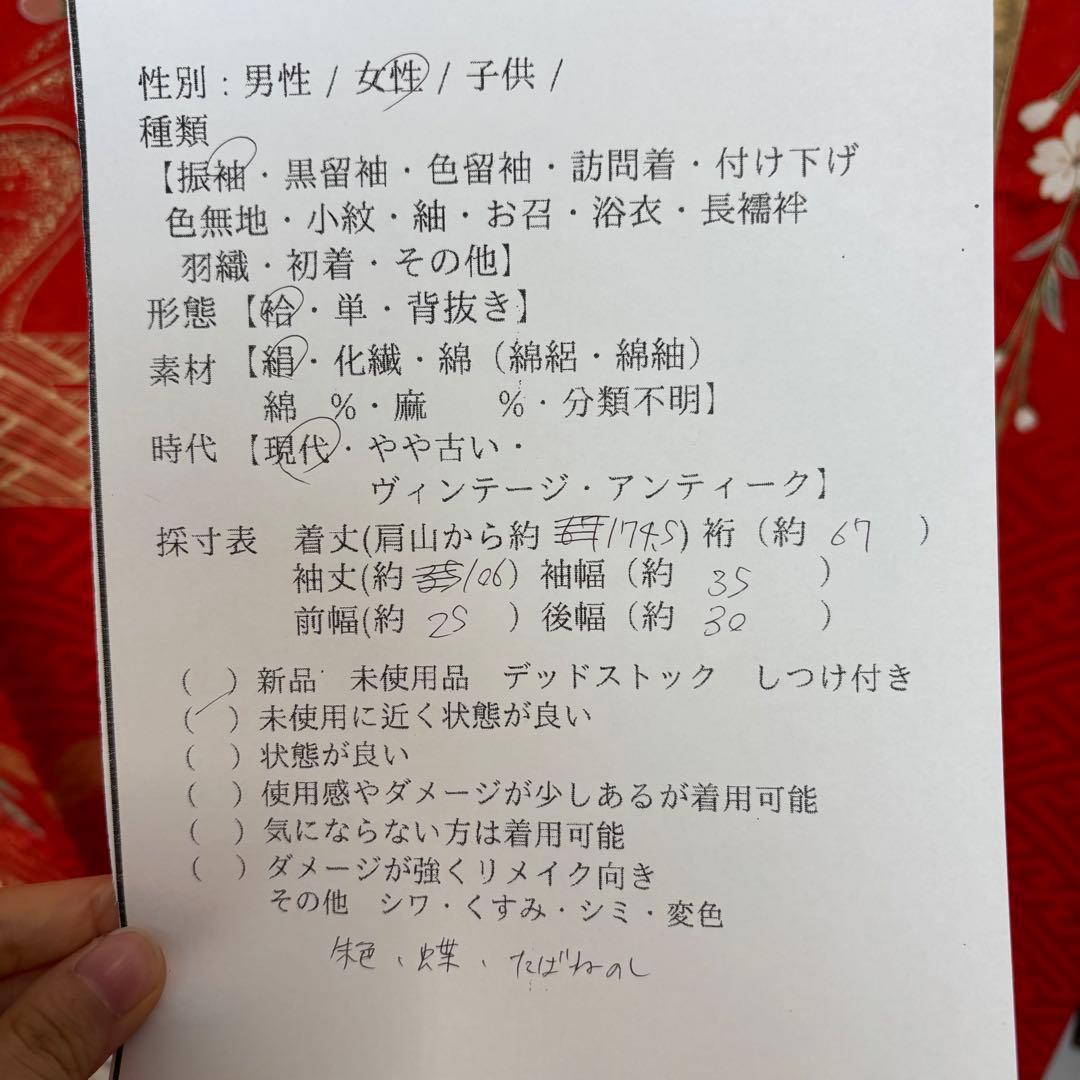 性別：男性 / 女性 / 子供 /
種類
【振袖・黒留袖・色留袖・訪問着・付け下げ
色無地・小紋・紬・お召・浴衣・長襦袢
羽織・初着・その他】
形態【袷・単・背抜き】
素材【絹・化繊・綿（綿絽・綿紬）
綿　%・麻　　%・分類不明】
時代【現代・やや古い・
ヴィンテージ・アンティーク】
採寸表　着丈(肩山から約 174.5) 裄（約 67 ）
袖丈(約 106）袖幅（約 35 ）
前幅(約 25 ）後幅（約 30 ）
（　）新品　未使用品　デッドストック　しつけ付き
（　）未使用に近く状態が良い
（　）状態が良い
（　）使用感やダメージが少しあるが着用可能
（　）気にならない方は着用可能
（　）ダメージが強くリメイク向き
その他　シワ・くすみ・シミ・変色
朱色、蝶、たばねのし